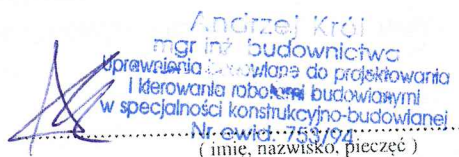 Andrzej Król
mgr inż. budownictwa
Uprawnienia budowlane do projektowania
i kierowania robotami budowlanymi
w specjalności konstrukcyjno-budowlanej
Nr ewid. 753/94
( imię, nazwisko, pieczęć )